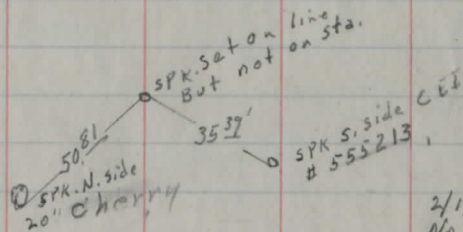 SPK. Set on line
But not on sta.
50.81
35.39'
SPK. N. side
20" Cherry
SPK S. side CEI
# 555213
2/1